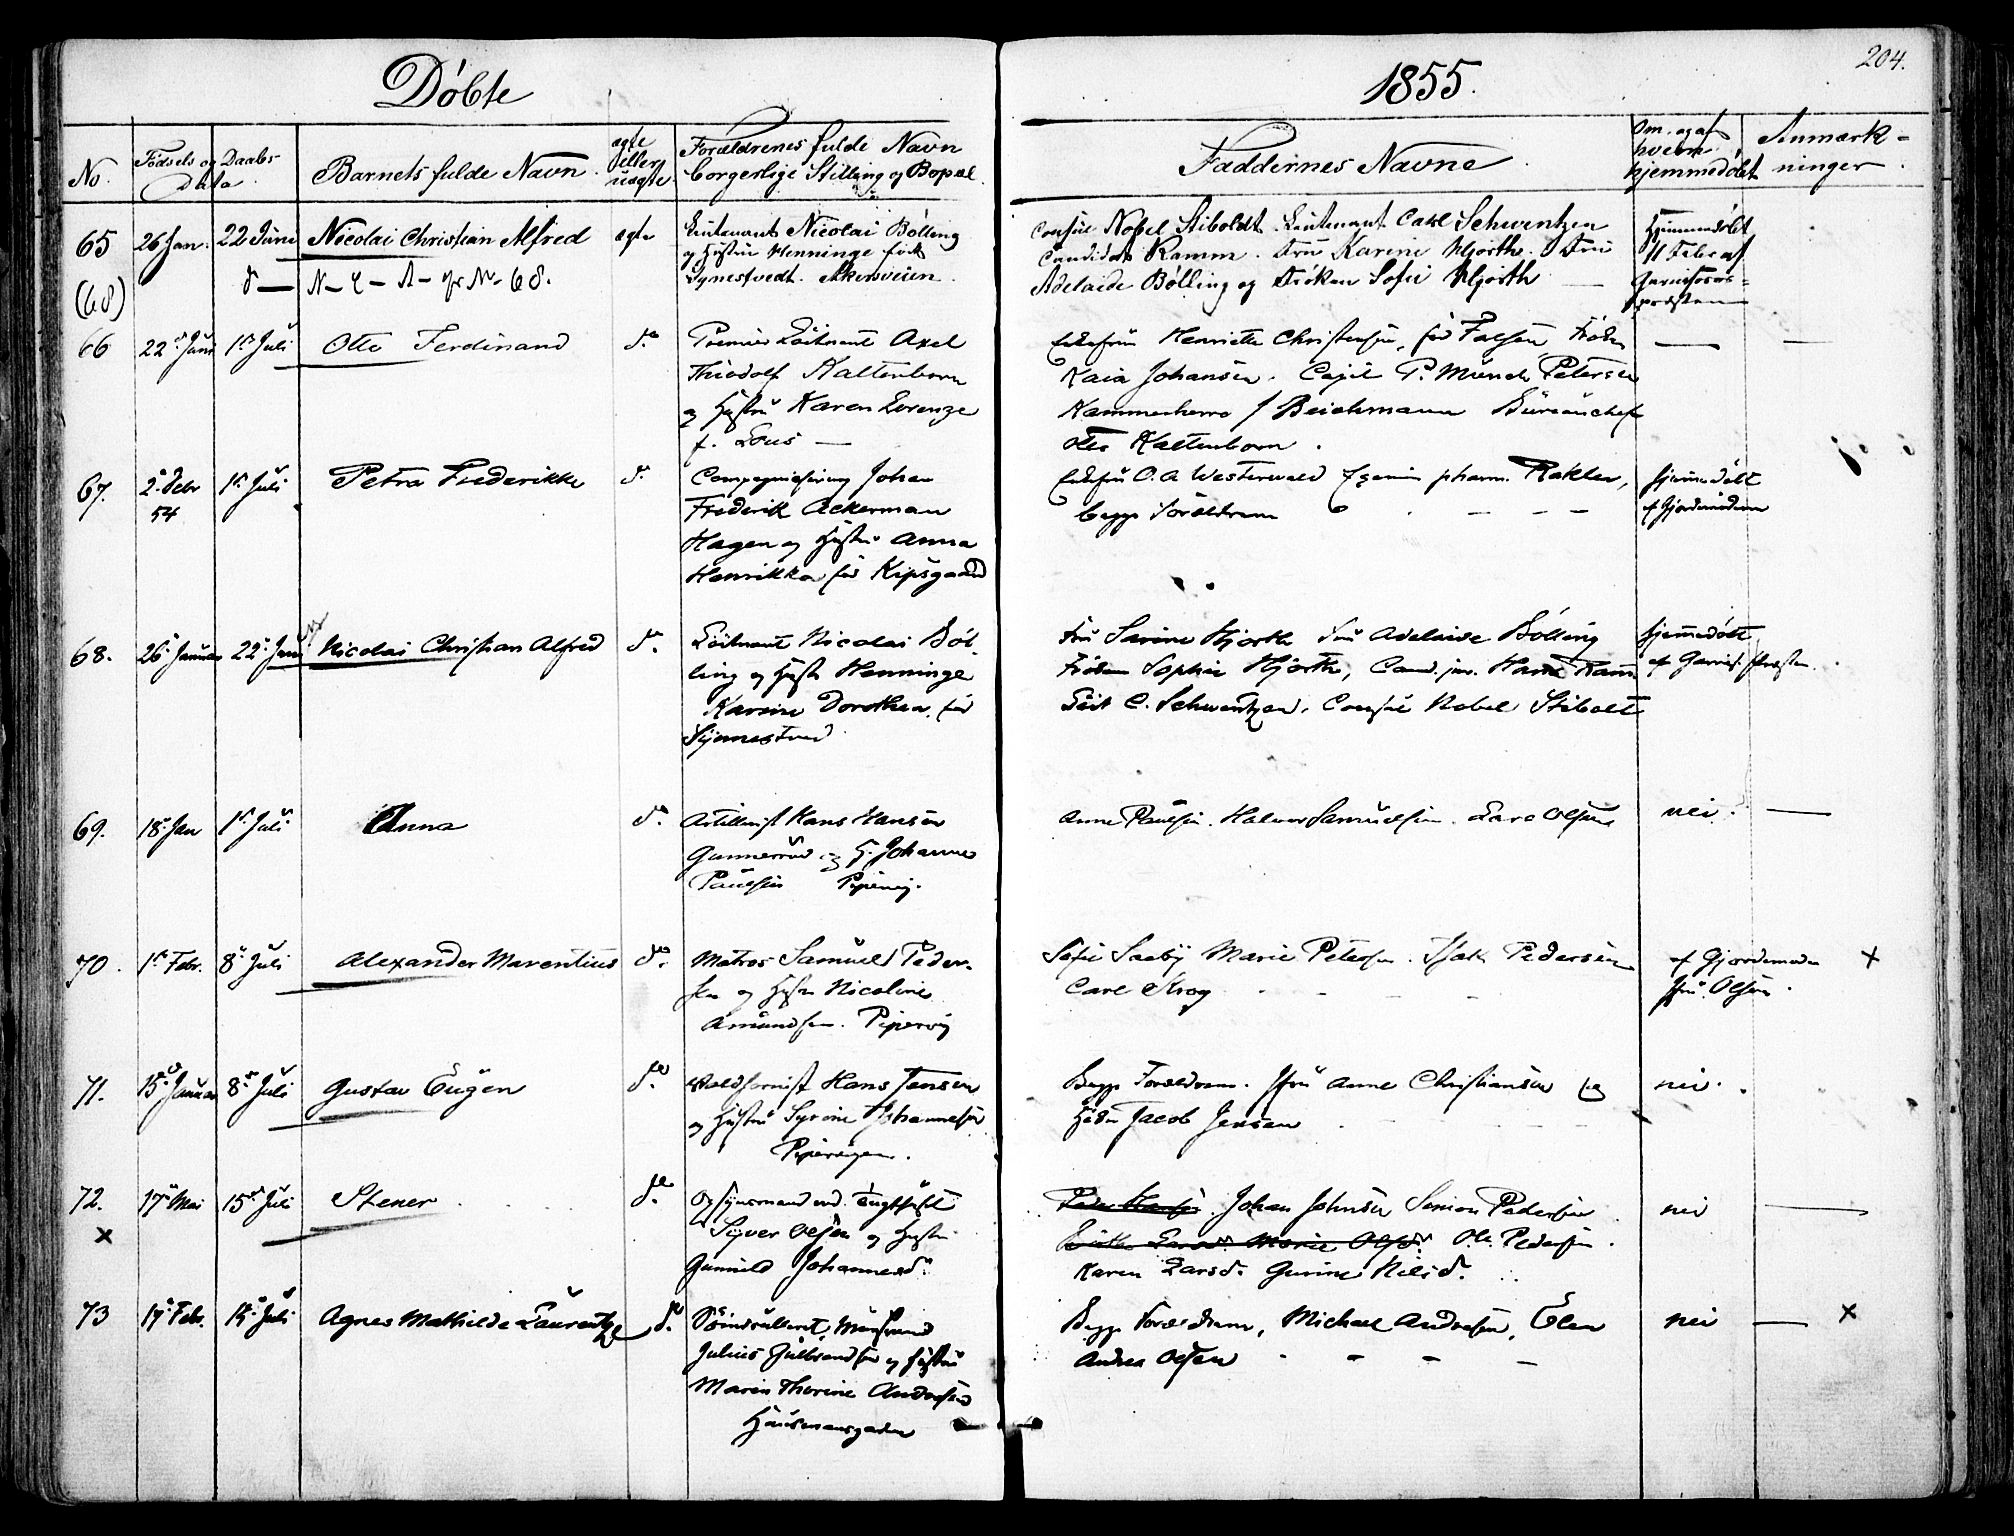 Döbte
1855.
204.
No.
Födsels og Daabs-
Data
Barnets fulde Navn.
ægte
eller
uægte.
Forældrenes fulde Navn
borgerlige Stilling og Bopæl.
Faddernes Navne
Om og af
hvem
hjemmedöbt
Anmærk-
ninger.
65
26 Jan.
22 Juni
Nicolai Christian Alfred
ægte
Lieutenant Nicolai Bölling
og Hustru Henninge föd
Synestvedt. Akersveien.
Consul Nobel Stiboldt. Lieutenant Carl Schwentzen
Candidat Ramm. Fru Karine Hjorth. Fru
Adelaide Bölling og Fröken Sofie Hjorth
Hjemmedöbt
11 Febr af
Garnisons-
præsten
(68)
N- C- A- No- 68.
66
22 Juni
1 Juli
Otto Ferdinand
do
Premier Löitnant Axel
Thiodolf Kaltenborn
og Hustru Karen Lorenze
f. Lous —
Enkefru Henriette Christensen, föd Falsen Fröken
Kaia Johansen. Capit P. Munch Petersen
Kammerherre / Beichmann Büreauchef
Otto Kaltenborn.
67.
2 Debr
54
1 Juli
Petra Frederikke
do
Compagnikirurg Johan
Frederik Ackerman
Hagen og Hustru Anna
Henrikka föd Kipsgaard
Enkefru O. A Westerwald Examin pharm. Rakler,
begge Forældrene
hjemmedöbt
af Gjordemoderen
68.
26 Januar
22 Juni
Nicolai Christian Alfred
do
Löitnant Nicolai Böl-
ling og Hustru Henninge
Karine Dorothea, föd
Synnestved.
Fru Sarine Hjorth Fru Adelaide Bölling
Fröken Sophie Hjorth, Cand. jur. Hans Ram
Löit C. Schwentzen, Consul Nobel Stibolt
hjemmedöbt
af Garnis. Præsten.
69.
18 Jan
1 Juli
Anna
do
Artillerist Hans Hansen
Gunnerrud og H. Johanne
Paulsen Pipervig.
Anne Paulsen. Halvor Samuelsen. Lars Olsen
nei.
70.
1 Febr.
8 Juli
Alexander Marentius
do.
Matros Samuel Peder-
sen og Hustru Nicoline
Amundsen. Pipervig
Sofie Saaby Marie Petersen. Isak Pedersen
Carl Krog
af Gjordemoder
Fru. Olsen.
X
71.
15 Januar
8 Juli
Gustav Eugen
do.
Hans Jensen
og Hustru Syrine Johannesen
Pipervigen.
Begge Forældrene. Fru Anne Christiansen og
Jacob Jensen
nei.
72.
X
17 Mai
15 Juli
Stener
do.
Opsynsmand ved Tugthuset
Syver Olsen og Hustru
Gunnild Johannesd.
Peder Hansen. Johan Johnsen Simon Pedersen
Larsd. Marie Olsd. Ole Pedersen.
Karen Larsd. Gurine Nilsd.
nei
73
17 Febr.
15 Juli
Agnes Mathilde Laurentze
do.
Julius Gulbrandsen og Hustru
Maren Thorine Andresen
Hausmansgaden
Begge Forældrene, Michael Andresen, Elen
Andrea Olsen
nei
X